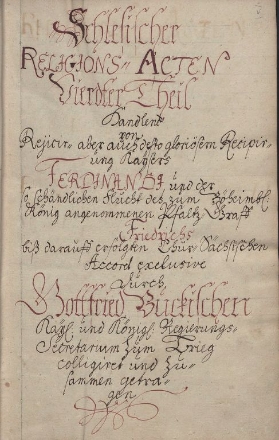 Schlesischer
RELIGIONS-ACTEN
Vierdter Theil
Handlent
von
Rejicir- aber auch desto gloriösern Recipir-
ung Kaÿsers
FERDINANDI, und der
schändlichen Flucht des zum Böheimbl:
König angenommenen Pfaltz Graff
Friedrichs
biß darauff erfolgten Chur Sächsischen
Accord exclusive
Durch,
Gottfried Buckischen
Kaÿs: und Königl: Regierungs-
Secretarium zum Brieg
colligiret und zu-
sammen getra-
gen